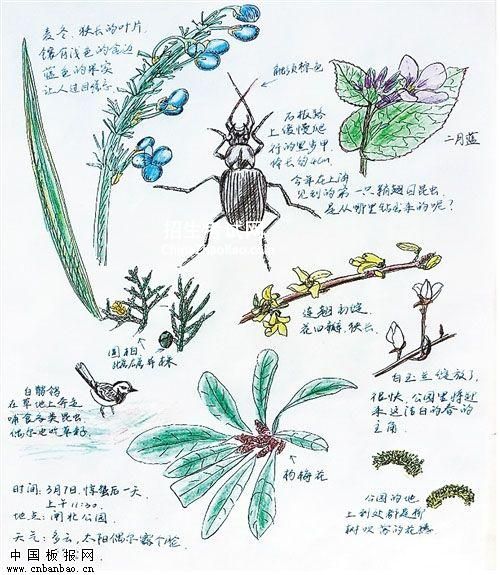 麦冬、狭长的叶片
镶有浅色的金边
蓝色的果实
让人过目难忘
触须棕色
石板路
上缓慢爬
行的黑步甲
体长约4cm
今年在上海
见到的第一只鞘翅目昆虫
是从哪里钻出来的呢?
二月蓝
招生考试网
圆柏
雌雄异株
连翘初绽
花四瓣,狭长
白玉兰绽放了,
很快,公园里将迎
来这洁白的香的
主角
白鹡鸰
在草地上奔走
啄食各类昆虫
偶尔也吃草籽
枸梅花
公园的地
上到处都是柳
树吹落的花穗
时间:3月7日,惊蛰后一天
上午11:30
地点:闸北公园
天气:多云,太阳偶尔露个脸
中国板报网
www.cnbanbao.cn